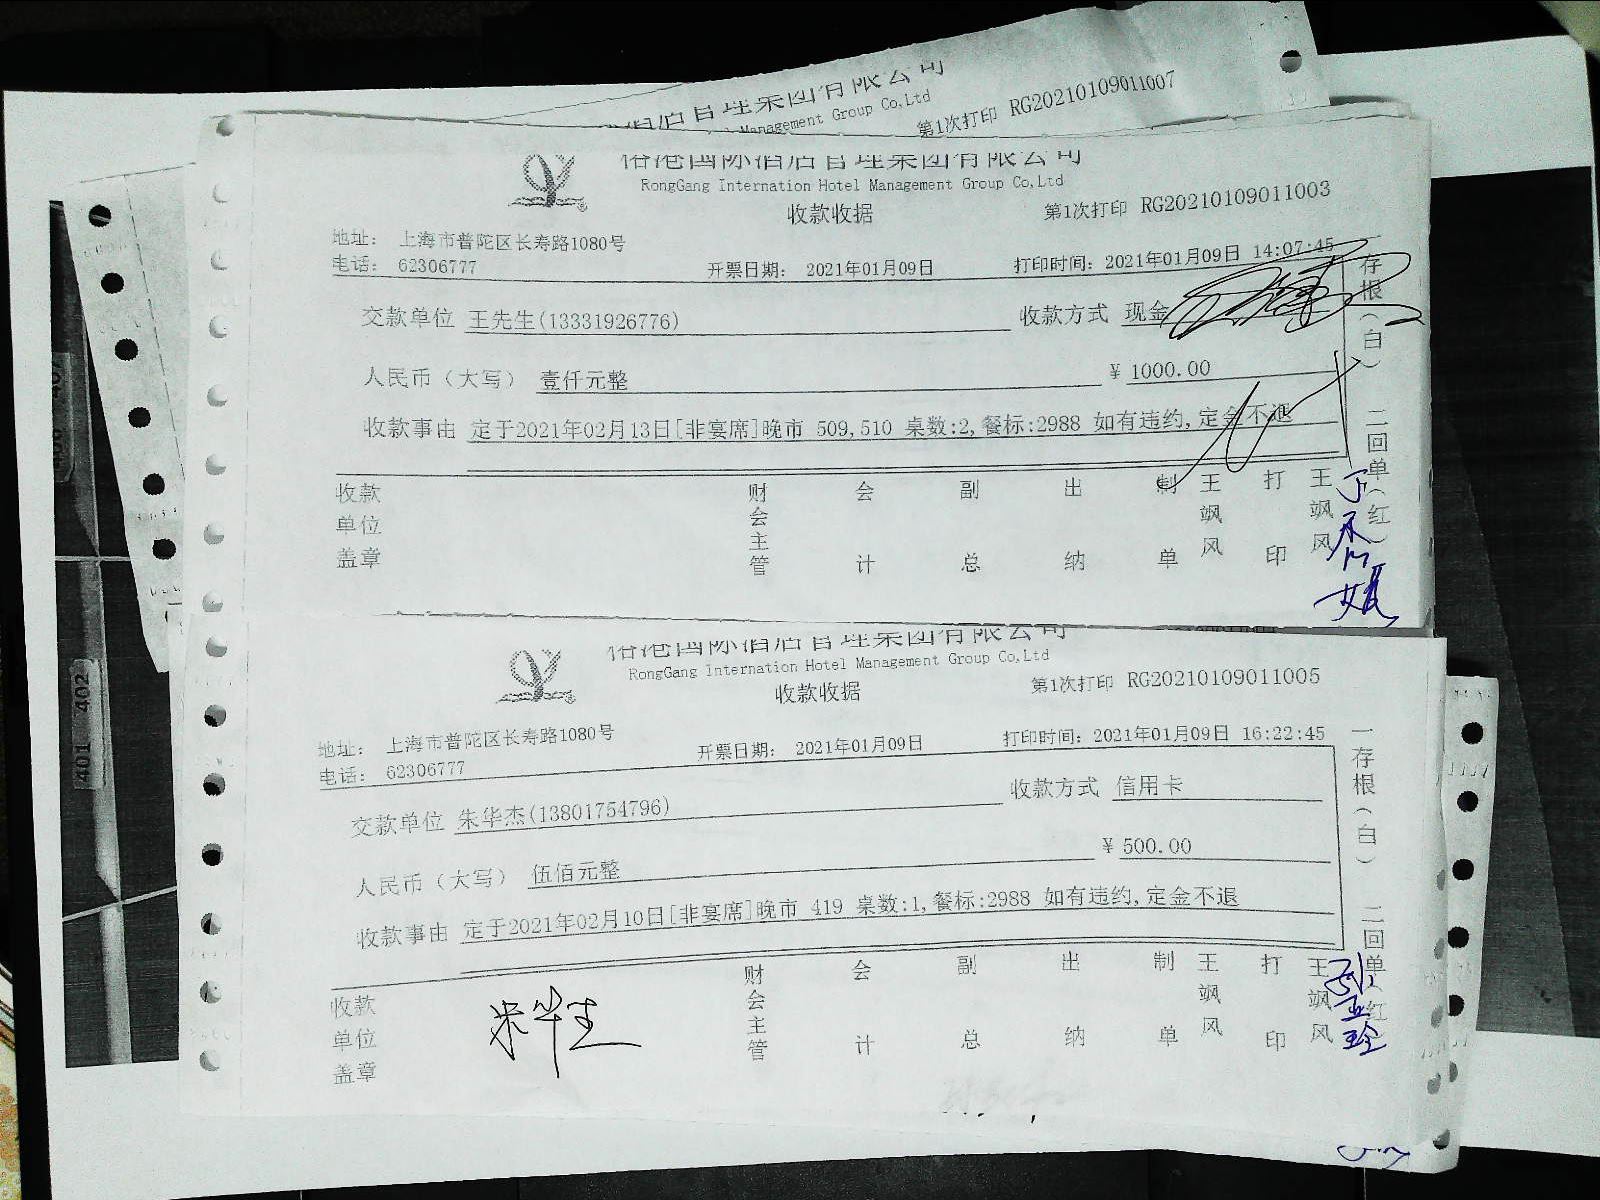 Management Group Co,Ltd
第1次打印 RG20210109011007
国际酒店管理集团有限公司
RongGang Internation Hotel Management Group Co,Ltd
收款收据
第1次打印 RG20210109011003
地址： 上海市普陀区长寿路1080号
电话： 62306777
开票日期： 2021年01月09日
打印时间：2021年01月09日 14:07:45
交款单位 王先生(13331926776)
收款方式 现金
人民币（大写） 壹仟元整
¥ 1000.00
收款事由 定于2021年02月13日[非宴席]晚市 509,510 桌数:2,餐标:2988 如有违约,定金不退
收款单位盖章
财会主管
会计
副总
出纳
制单
王飒风
打印
王飒风
一存根（白） 二回单（红）
国际酒店管理集团有限公司
RongGang Internation Hotel Management Group Co,Ltd
收款收据
第1次打印 RG20210109011005
地址： 上海市普陀区长寿路1080号
电话： 62306777
开票日期： 2021年01月09日
打印时间：2021年01月09日 16:22:45
交款单位 朱华杰(13801754796)
收款方式 信用卡
人民币（大写） 伍佰元整
¥ 500.00
收款事由 定于2021年02月10日[非宴席]晚市 419 桌数:1,餐标:2988 如有违约,定金不退
收款单位盖章
财会主管
会计
副总
出纳
制单
王飒风
打印
王飒风
一存根（白） 二回单（红）
401 402